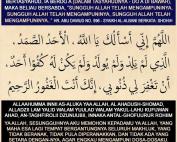 BERTASYAHUD. IA BERDO'A (DALAM TASYAHUDNYA - DO'A DI BAWAH),
MAKA BELIAU BERSABDA, "SUNGGUH ALLAH TELAH MENGAMPUNINYA,
SUNGGUH ALLAH TELAH MENGAMPUNINYA, SUNGGUH ALLAH TELAH
اللَّهُمَّ إِنِّي أَسْأَلُكَ يَا اللَّهُ الْأَحَدُ الصَّمَدُ،
الَّذِي لَمْ يَلِدْ وَلَمْ يُولَدْ وَلَمْ يَكُنْ لَهُ كُفُوًا أَحَدٌ،
أَنْ تَغْفِرَ لِي ذُنُوبِي، إِنَّكَ أَنْتَ الْغَفُورُ الرَّحِيمُ
ALLAHUMMA INNII AS-ALUKA YAA ALLAH, AL AHADUSH-SHOMAD,
ALLADZII LAM YALID WALAM YUULAD WALAM YAKUL LAHU KUFUWAN
AHAD, AN-TAGHFIROLII DZUNUUBII, INNAKA ANTAL-GHOFUURUR ROHIIM
YA ALLAH, SESUNGGUHNYA AKU MEMOHON KEPADAMU YA ALLAH, YANG
MAHA ESA LAGI TEMPAT BERGANTUNGNYA SELURUH MAKHLUK, YANG
TIDAK BERANAK, TIDAK PULA DIPERANAKKAN, DAN TIDAK ADA YANG
SETARA DENGAN-NYA, AGAR ENGKAU MENGAMPUNI DOSA-DOSAKU.